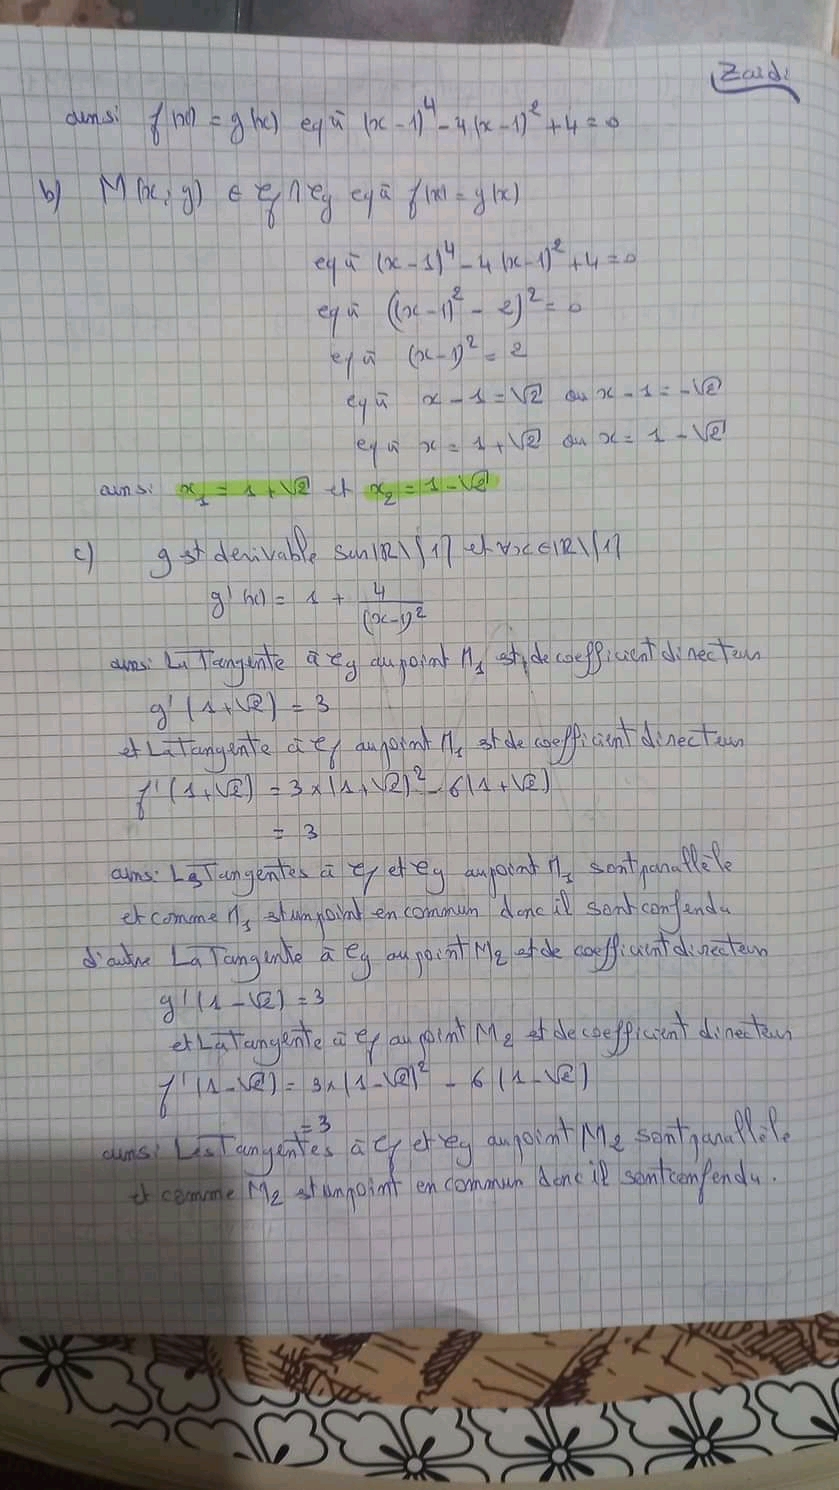 Zaidi
ainsi f(x) = g(x) eq à (x-1)⁴ - 4(x-1)² + 4 = 0
b) M(x,y) ∈ ℓf ∩ ℓg eq à f(x) = g(x)
eq à (x-1)⁴ - 4(x-1)² + 4 = 0
eq à ((x-1)² - 2)² = 0
eq à (x-1)² = 2
eq à x - 1 = √2 ou x - 1 = -√2
eq à x = 1 + √2 ou x = 1 - √2
ainsi x₁ = 1 + √2 et x₂ = 1 - √2
c) g st derivable sur IR\{1} et ∀x∈IR\{1}
g'(x) = 1 + 4/(x-1)²
ainsi La Tangente à ℓg au point M₁ est de coefficient directeur
g'(1+√2) = 3
et La Tangente à ℓf au point M₁ st de coefficient directeur
f'(1+√2) = 3×(1+√2)² - 6(1+√2)
= 3
ains: Ls Tangentes à ℓf et ℓg au point M₁ sont parallèle
et comme M₁ st un point en commun donc il sont confendu
d'autre La Tangente à ℓg au point M₂ st de coefficient directeur
g'(1-√2) = 3
et La Tangente à ℓf au point M₂ st de coefficient directeur
f'(1-√2) = 3×(1-√2)² - 6(1-√2)
= 3
ains: Les Tangentes à ℓf et ℓg au point M₂ sont parallèle
et comme M₂ st un point en commun donc il sont confendu.